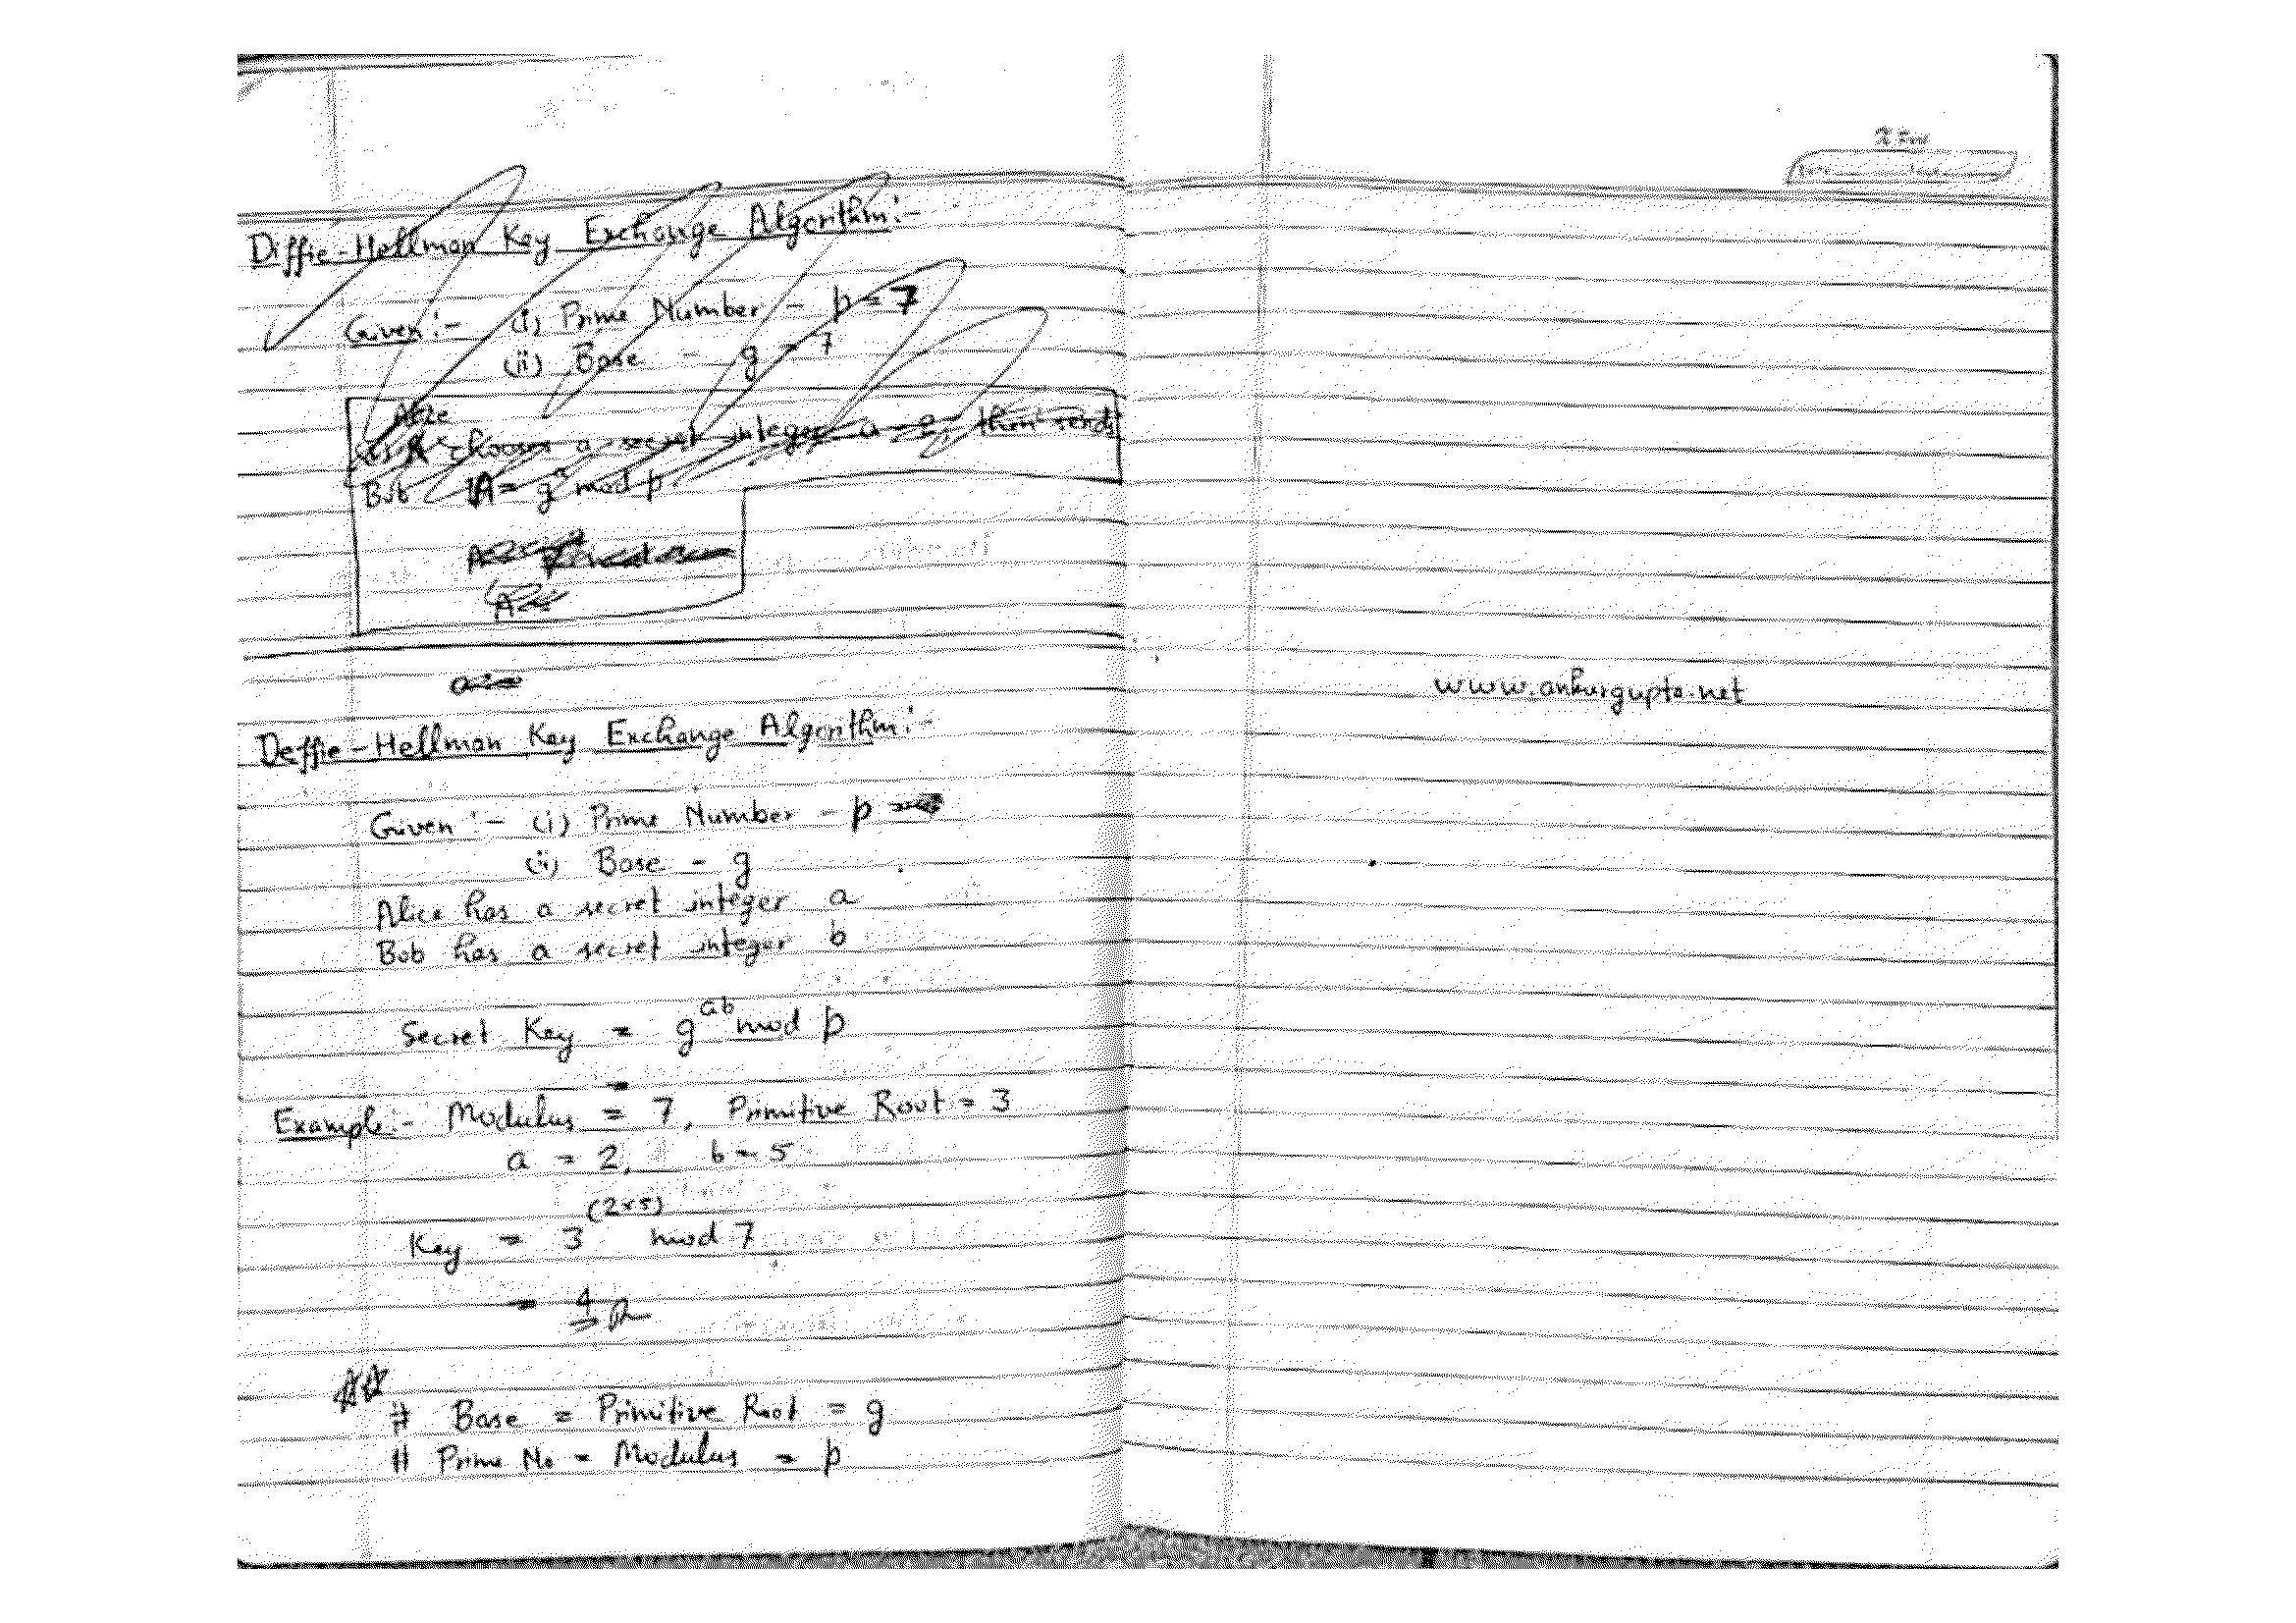 Diffie-Hellman Key Exchange Algorithm:-
Given:- (i) Prime Number - p = 7
(ii) Base - g = 7
Alice
chooses a secret integer a = 2, then sends
Bob A = g^a mod p
Deffie-Hellman Key Exchange Algorithm:-
Given:- (i) Prime Number - p
(ii) Base - g
Alice has a secret integer a
Bob has a secret integer b
Secret Key = g^ab mod p
Example:- Modulus = 7, Primitive Root = 3
a = 2, b = 5
Key = 3^(2×5) mod 7
= 4
# Base = Primitive Root = g
# Prime No = Modulus = p
www.ankurgupta.net